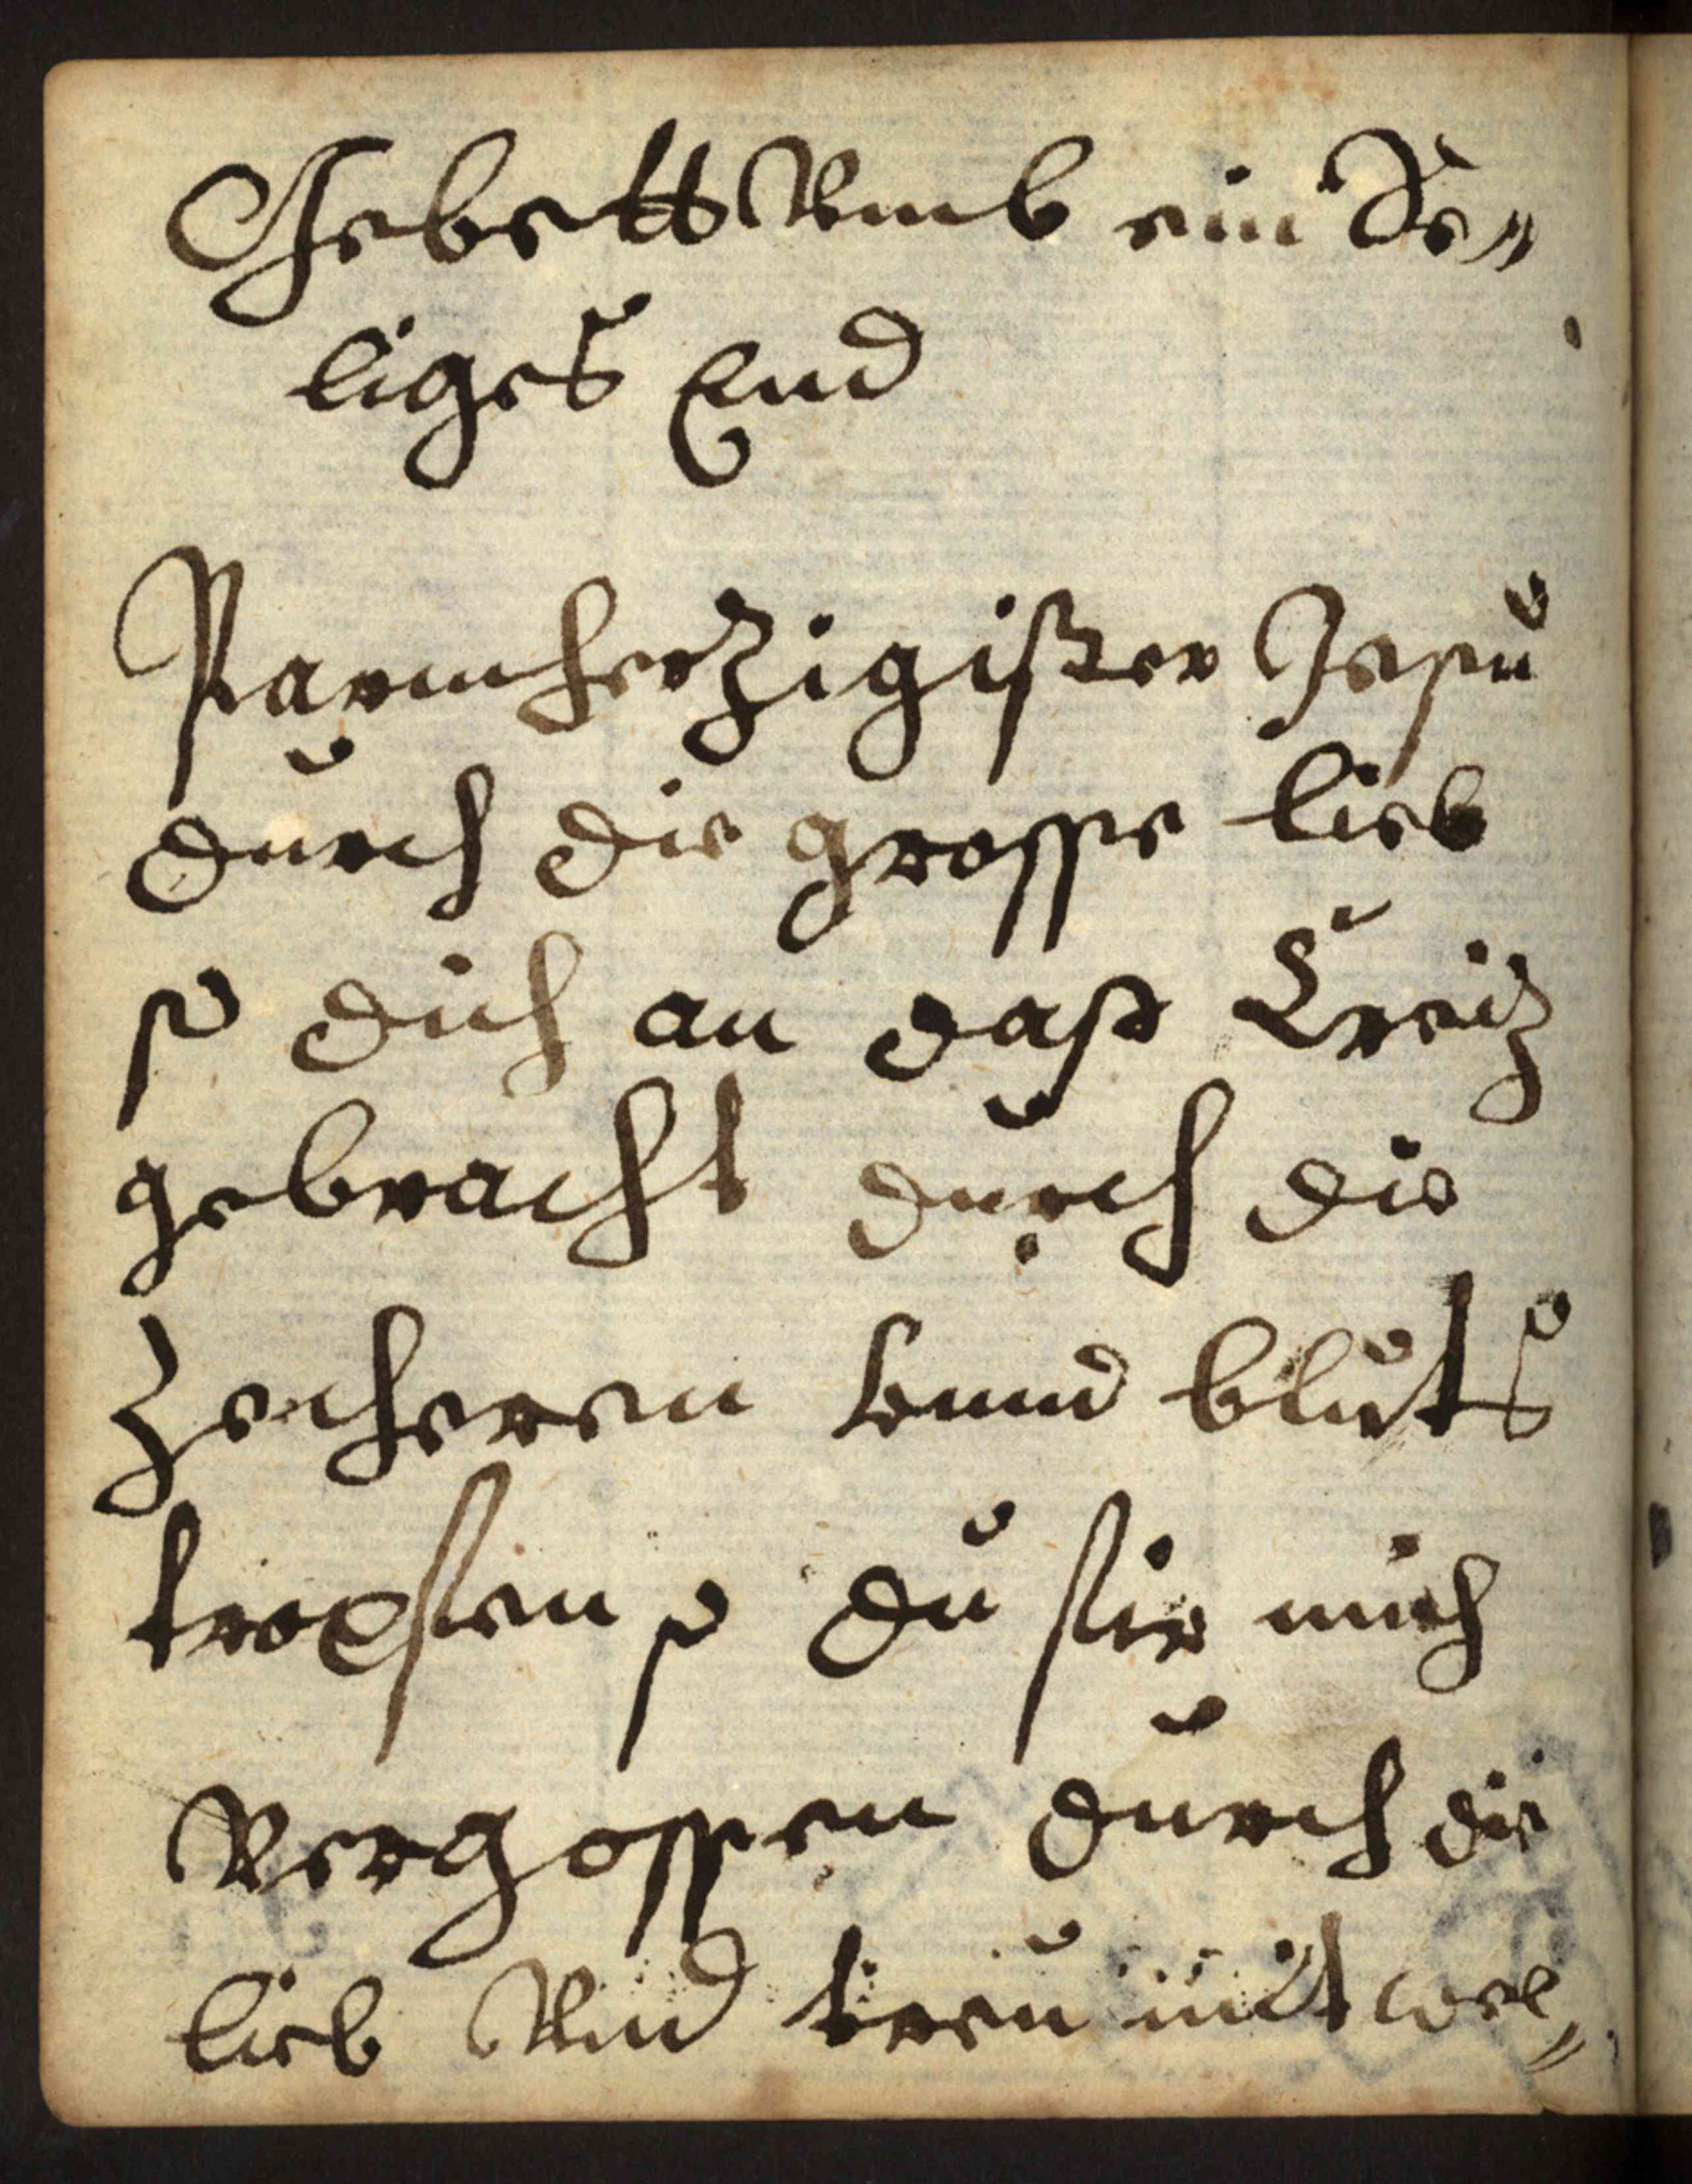 Gebett Vmb ein Se„
liges End
Parmherzigister Jesu
durch die grosse lieb
so dich an dass Creiz
gebracht durch die
Zecheren vnnd bluts
tropfen so du fir mich
Vergossen durch die
lieb Vnd treu mit wel„